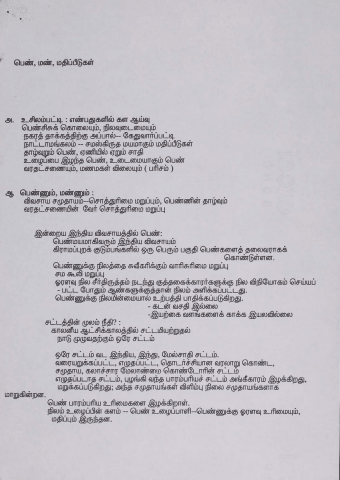 பெண், மண், மதிப்பீடுகள்
அ. உசிலம்பட்டி : எண்பதுகளில் கள ஆய்வு
பெண்சிசுக் கொலையும், நிலவுடைமையும்
நகரத் தாக்கத்திற்கு அப்பால்-- கேதுவார்பட்டி
நாட்டாமங்கலம் -- சமஸ்கிருத மயமாகும் மதிப்பீடுகள்
தாழ்வுறும் பெண், ஏணியில் ஏறும் சாதி
உழைப்பை இழந்த பெண், உடைமையாகும் பெண்
வரதட்சணையும், மணமகள் விலையும் ( பரிசம் )
ஆ பெண்ணும், மண்ணும் :
விவசாய சமுதாயம்--சொத்துரிமை மறுப்பும், பெண்ணின் தாழ்வும்
வரதட்சணையின் வேர் சொத்துரிமை மறுப்பு
இன்றைய இந்திய விவசாயத்தில் பெண்:
பெண்மயமாகிவரும் இந்திய விவசாயம்
கிராமப்புறக் குடும்பங்களில் ஒரு பெரும் பகுதி பெண்களைத் தலைவராகக்
கொண்டுள்ளன.
பெண்ணுக்கு நிலத்தை சுவீகரிக்கும் வாரிசுரிமை மறுப்பு
சம கூலி மறுப்பு
ஓரளவு நில சீர்திருத்தம் நடந்து குத்தகைக்காரர்களுக்கு நில விநியோகம் செய்யப்
- பட்ட போதும் ஆண்களுக்குத்தான் நிலம் அளிக்கப்பட்டது.
பெண்ணுக்கு நிலமின்மையால் உற்பத்தி பாதிக்கப்படுகிறது.
- கடன் வசதி இல்லை
-இயற்கை வளங்களைக் காக்க இயலவில்லை
சட்டத்தின் மூலம் நீதி? :
காலனிய ஆட்சிக்காலத்தில் சட்டமியற்றுதல்
நாடு முழுவதற்கும் ஒரே சட்டம்
ஒரே சட்டம் வட இந்திய, இந்து, மேல்சாதி சட்டம்.
வரையறுக்கப்பட்ட, எழுதப்பட்ட, தொடர்ச்சியான வரலாறு கொண்ட,
சமுதாய, கலாச்சார மேலாண்மை கொண்டோரின் சட்டம்
எழுதப்படாத சட்டம், பழங்கி வந்த பாரம்பரியச் சட்டம் அங்கீகாரம் இழக்கிறது,
மறுக்கப்படுகிறது; அந்த சமுதாயங்கள் விளிம்பு நிலை சமுதாயங்களாக
மாறுகின்றன.
பெண் பாரம்பரிய உரிமைகளை இழக்கிறாள்.
நிலம் உழைப்பின் களம் -- பெண் உழைப்பாளி--பெண்ணுக்கு ஓரளவு உரிமையும்,
மதிப்பும் இருந்தன.